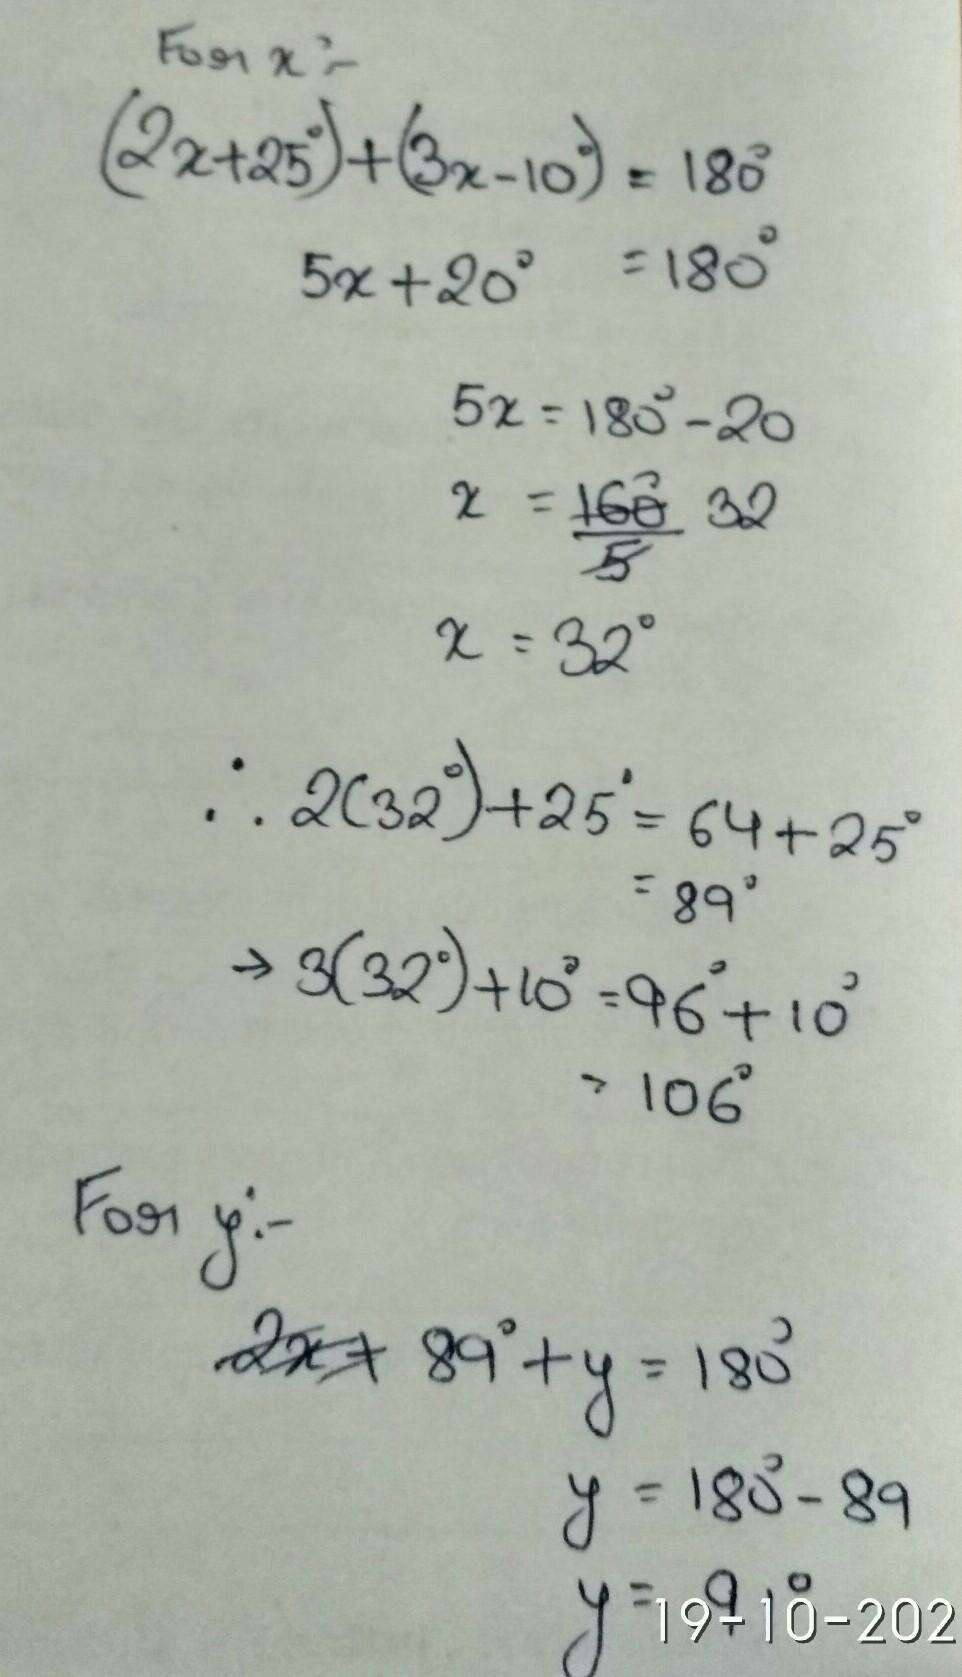 For x:-
(2x+25°)+(3x-10°) = 180°
5x+20° =180°
5x = 180°-20
x = 160°/5 32
x = 32°
∴ 2(32°)+25° = 64+25°
= 89°
→ 3(32°)+10° = 96°+10°
= 106°
For y:-
2x+ 89°+y = 180°
y = 180°-89
y = 91°
19-10-202